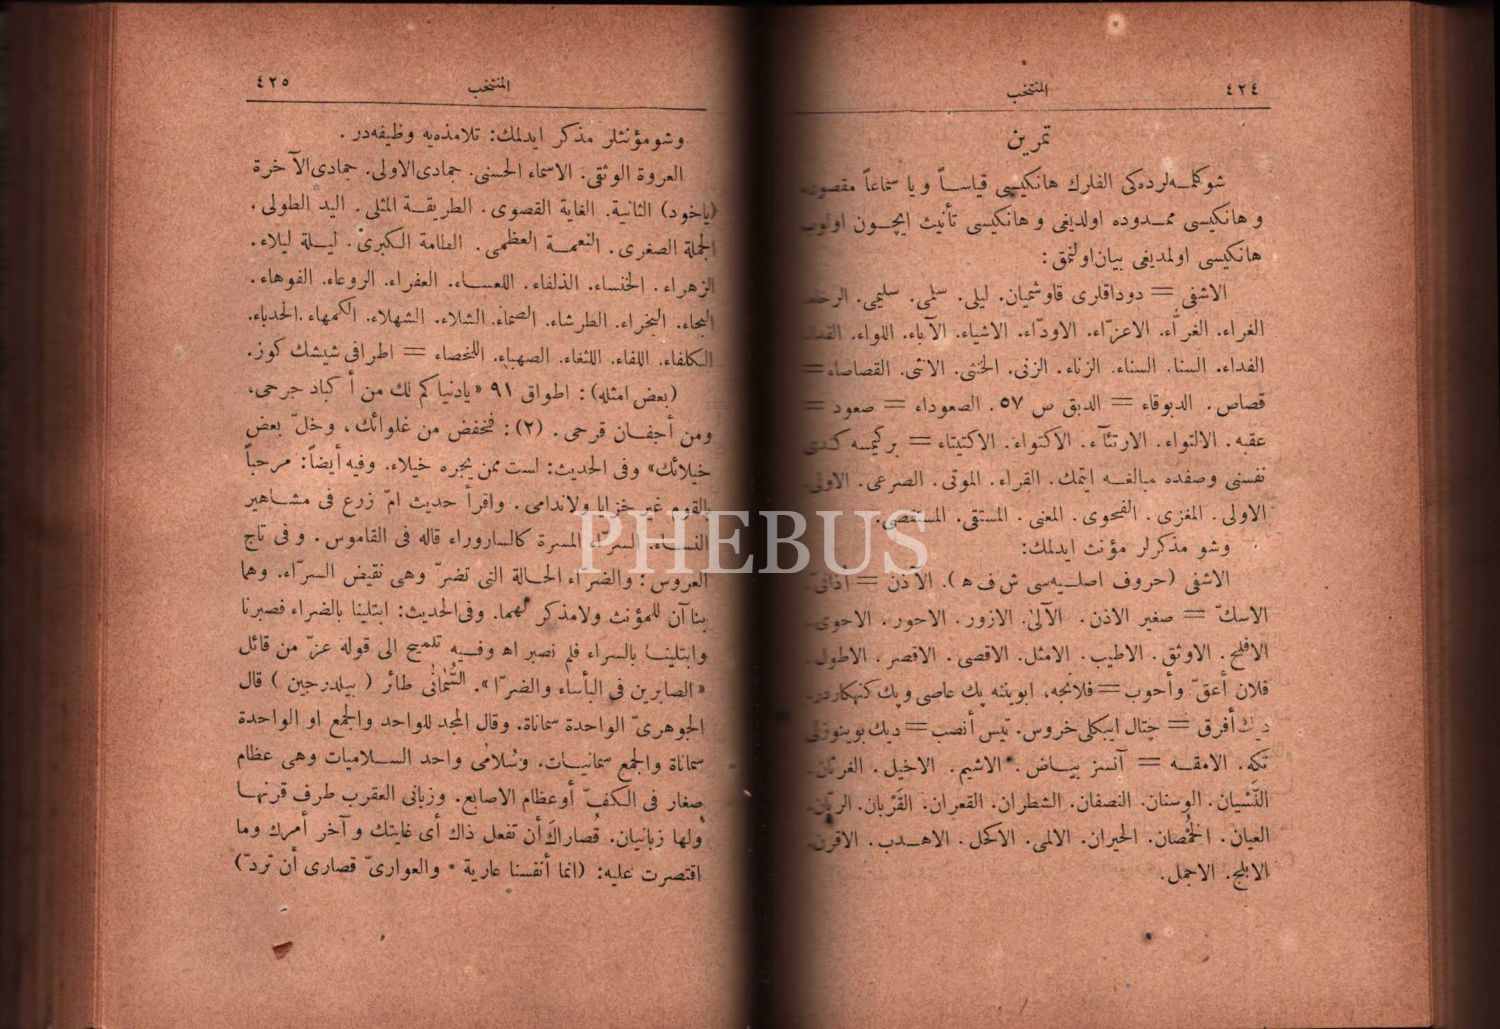 ٤٢٤ المنتخب
تمرين
شوكلمه‌لرده‌كى الفلرك هانكيسى قياساً ويا سماعاً مقصوره
و هانكيسى ممدوده اولديغى و هانكيسى تأنيث ايچون اولوب
هانكيسى اولمديغى بيان اولنمق:
الاشفى = دوداقلرى قاوشميان. ليلى. سلمى. سليمى.
الغراء. الغراء. الاعزّاء. الاودّاء. الاشياء. الآباء. اللواء.
الفداء. السنا. السناء. الزناء. الزنى. الخنثى. الانثى. القصاصاء =
قصاص. الدبوقاء = الدبق ص ٥٧. الصعوداء = صعود =
عقبه. الالتواء. الارتئآء. الاكتواء. الاكتيتاء = بر كيمسه كندى
نفسنى وصفده مبالغه ايتمك. القراء. الموتى. الصرعى. الاولى.
الاولى. المغزى. الفحوى. المعنى. المستقى. المستقصى.
وشو مذكرلر مؤنث ايدلمك:
الاشفى (حروف اصليه‌سى ش ف ه). الاذن = أذانىّ.
الاسكّ = صغير الاذن. الآلى. الازور. الاحور. الاحوى.
الافلج. الاوثق. الاطيب. الامثل. الاقصى. الاقصر. الاطول.
فلان أعقّ وأحوب = فلانجه، ابويننه پك عاصى و پك كنهكاردر.
ديك أفرق = چتال ايبكلى خروس. تيس أنصب = ديك بوينوزلى
تكه. الامقه = آنسز بياض. الاشيم. الاخيل. الغرثان.
النَّسْيان. الوسنان. النصفان. الشطران. القعران. القَرْبان. الريّان.
العيان. الخُمْصان. الحيران. الالمى. الاكحل. الاهدب. الاقرن.
الابلج. الاجمل.
المنتخب ٤٢٥
وشومؤنثلر مذكر ايدلمك: تلامذه‌يه وظيفه‌در.
العروة الوثقى. الاسماء الحسنى. جمادى‌الاولى. جمادى‌الآخرة
(ياخود) الثانية. الغاية القصوى. الطريقة المثلى. اليد الطولى.
الجملة الصغرى. النعمة العظمى. الطامة الكبرى. ليلة ليلاء.
الزهراء. الخنساء. الذلفاء. اللعساء. العفراء. الروعاء. الفوهاء.
البجاء. البخراء. الطرشاء. الصماء. الشلاء. الشهلاء. الكمهاء. الحدباء.
الكلفاء. اللفاء. اللثغاء. الصهباء. اللخصاء = اطرافى شيشك كوز.
(بعض امثله): اطواق ٩١ «يادنيا كم لك من أكباد جرحى،
ومن أجفان قرحى. (٢): فخفض من غلوائك، وخلّ بعض
خيلائك» وفى الحديث: لست ممن يجره خيلاء. وفيه أيضاً: مرحباً
بالقوم غير خزايا ولاندامى. واقرأ حديث امّ زرع فى مشاهير
النساء. السرّاء المسرة كالساروراء قاله فى القاموس. وفى تاج
العروس: والضرّاء الحالة التى تضرّ وهى نقيض السرّاء. وهما
بنا آن للمؤنث ولامذكر لهما. وفى‌الحديث: ابتلينا بالضراء فصبرنا
وابتلينا بالسراء فلم نصبر اه وفيه تلميح الى قوله عزّ من قائل
«الصابرين فى البأساء والضرّا». السُّمَانى طائر (بيلدرجين) قال
الجوهرىّ الواحدة سماناة. وقال المجد للواحد والجمع او الواحدة
سماناة والجمع سمانيات. وسُلامى واحد السلاميات وهى عظام
صغار فى الكفّ أوعظام الاصابع. وزبانى العقرب طرف قرنها
ولها زبانيان. قُصاراكَ أن تفعل ذاك أى غايتك و آخر أمرك وما
اقتصرت عليه: (انما أنفسنا عارية * والعوارىّ قصارى أن تردّ)
PHEBUS